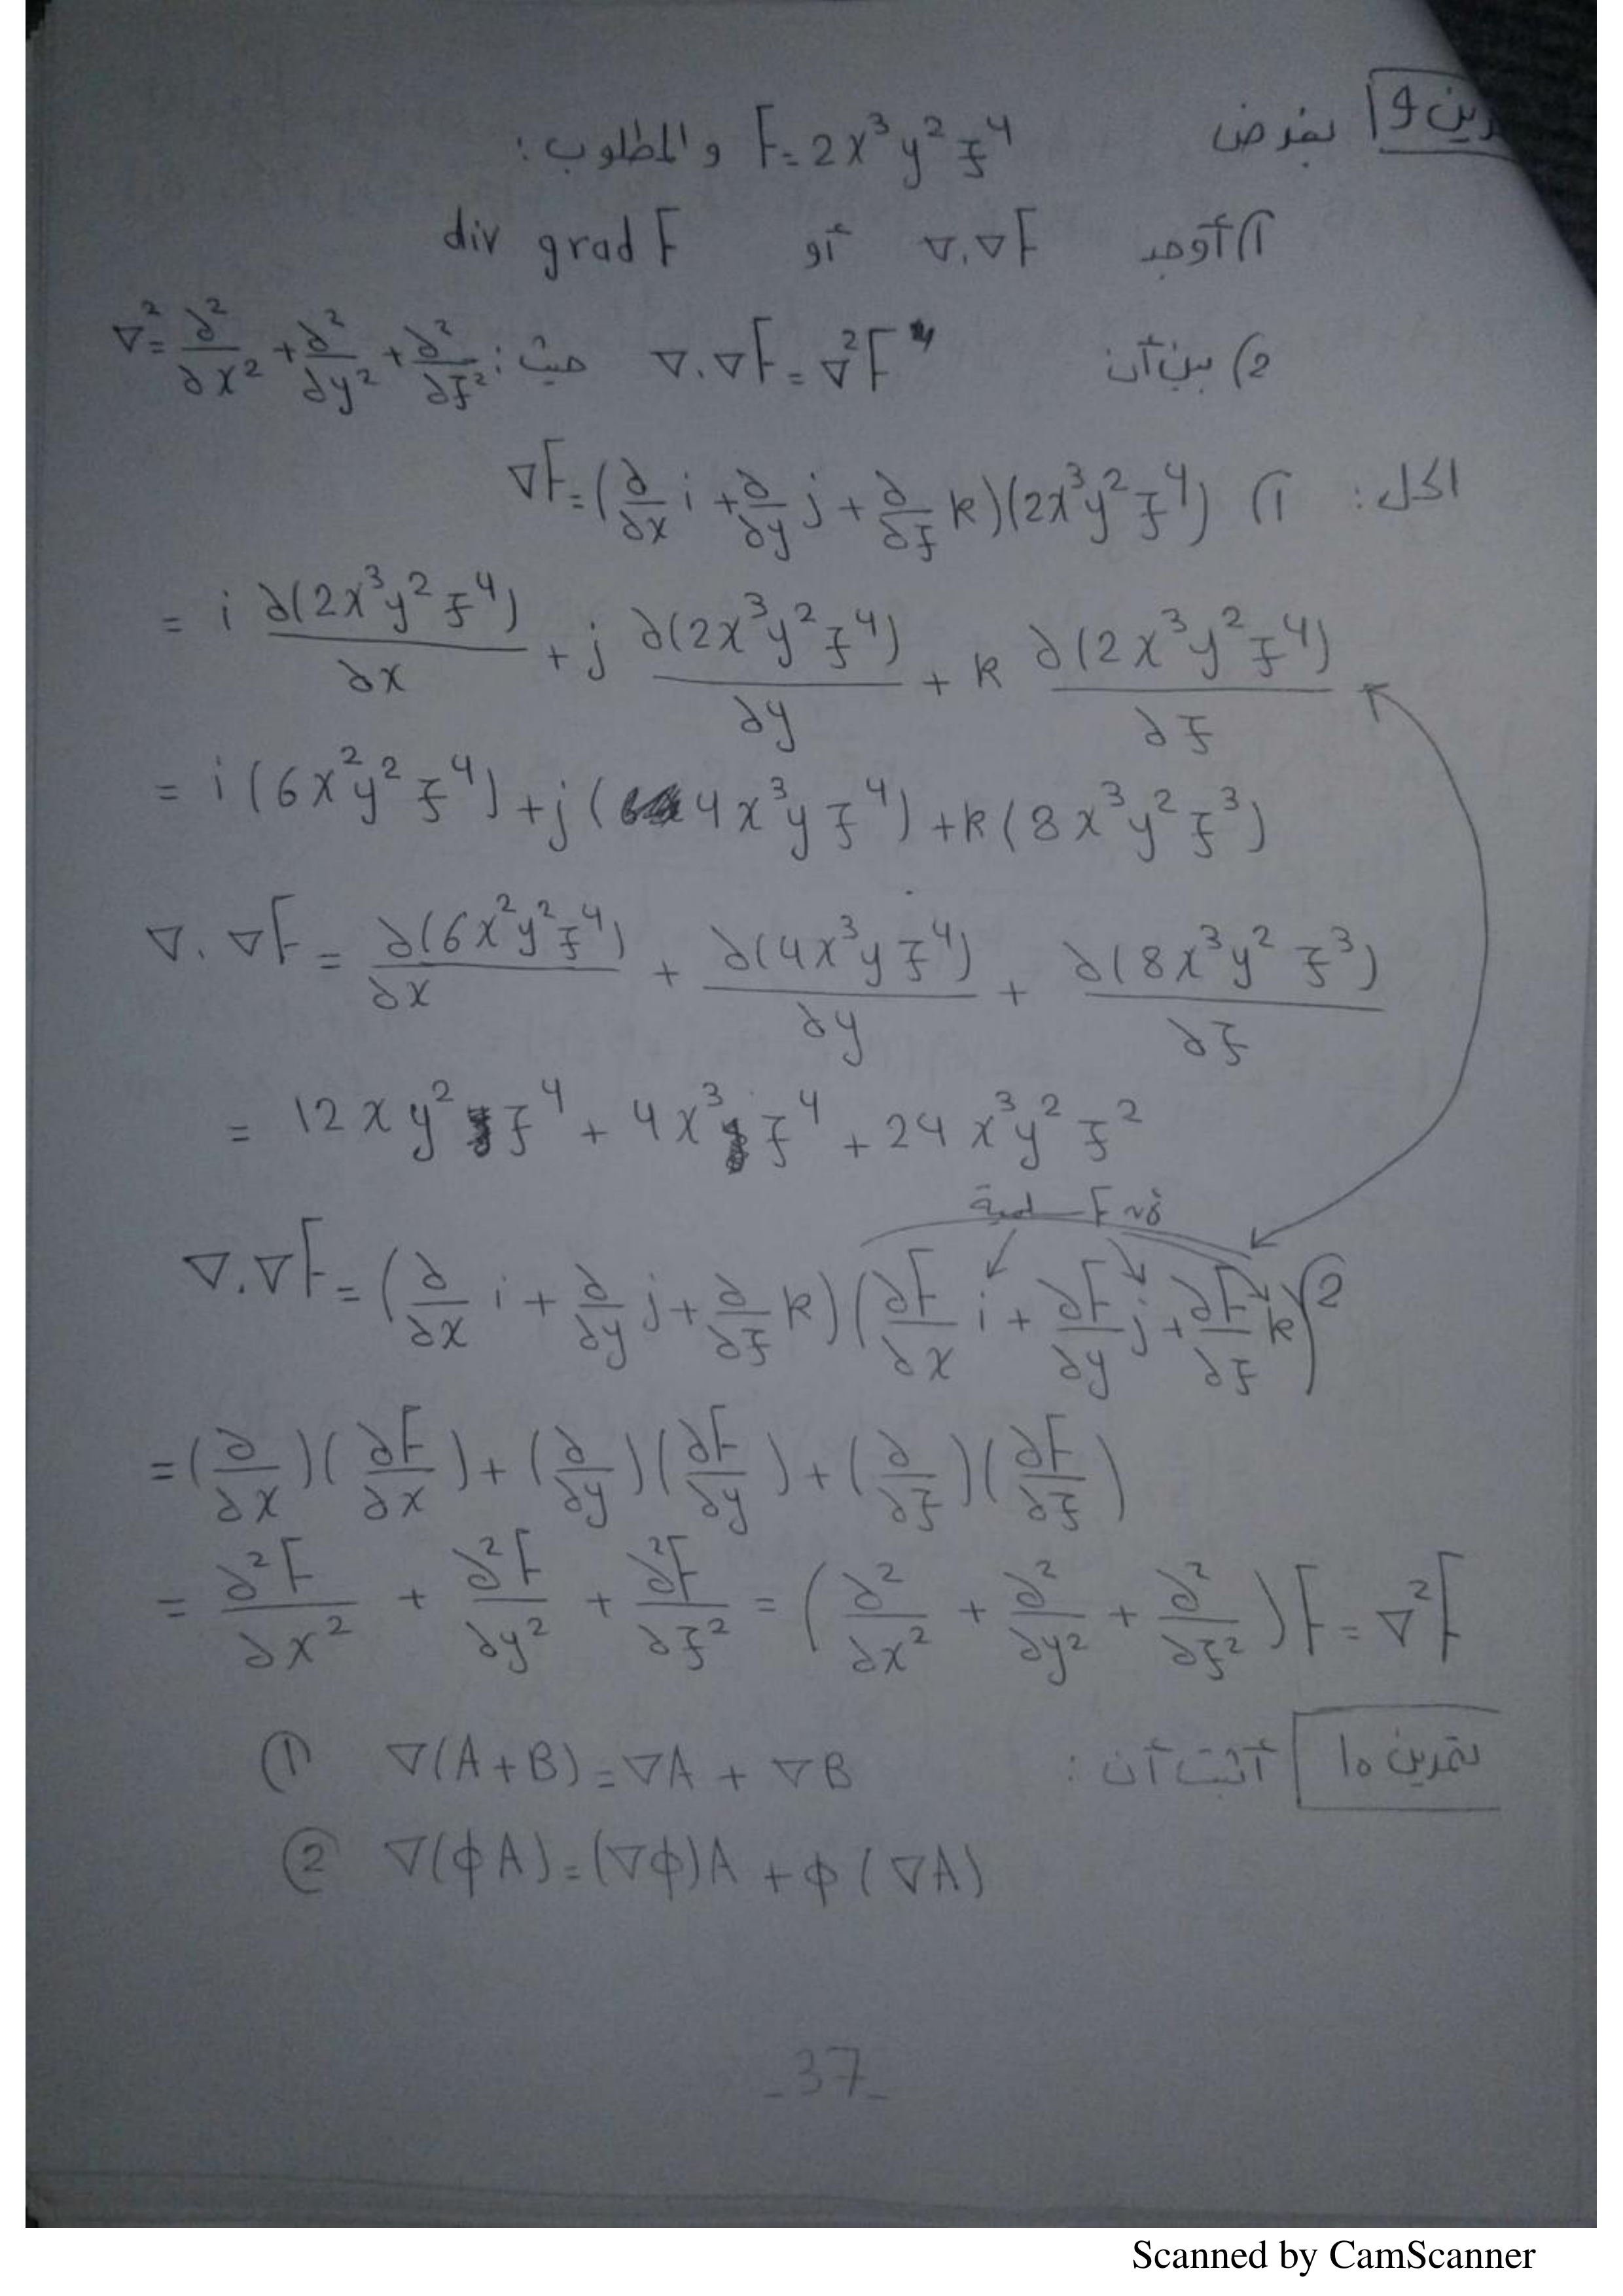 رين 9 بفرض F = 2x³y²z⁴ والمطلوب:
1) أوجد ∇.∇F أو div grad F
2) بين أن ∇.∇F = ∇²F حيث: ∇² = ∂²/∂x² + ∂²/∂y² + ∂²/∂z²
الحل: 1) ∇F = (∂/∂x i + ∂/∂y j + ∂/∂z k)(2x³y²z⁴)
= i ∂(2x³y²z⁴)/∂x + j ∂(2x³y²z⁴)/∂y + k ∂(2x³y²z⁴)/∂z
= i(6x²y²z⁴) + j(4x³yz⁴) + k(8x³y²z³)
∇.∇F = ∂(6x²y²z⁴)/∂x + ∂(4x³yz⁴)/∂y + ∂(8x³y²z³)/∂z
= 12xy²z⁴ + 4x³z⁴ + 24x³y²z²
F سلمية
2) ∇.∇F = (∂/∂x i + ∂/∂y j + ∂/∂z k)(∂F/∂x i + ∂F/∂y j + ∂F/∂z k)
= (∂/∂x)(∂F/∂x) + (∂/∂y)(∂F/∂y) + (∂/∂z)(∂F/∂z)
= ∂²F/∂x² + ∂²F/∂y² + ∂²F/∂z² = (∂²/∂x² + ∂²/∂y² + ∂²/∂z²)F = ∇²F
تمرين 10 أثبت أن: ① ∇(A+B) = ∇A + ∇B
② ∇(ϕA) = (∇ϕ)A + ϕ(∇A)
-37-
Scanned by CamScanner